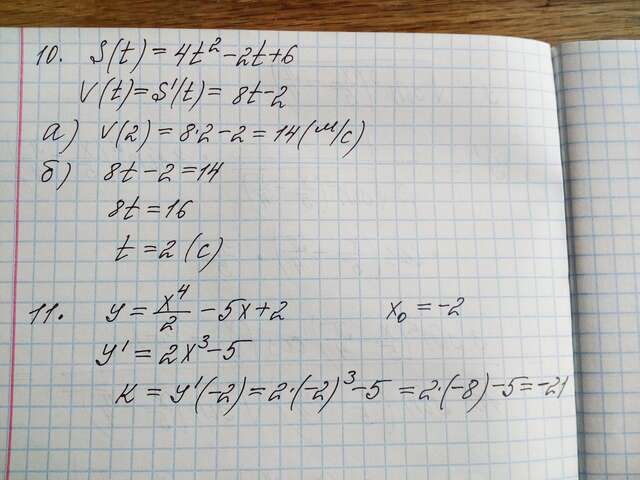 10. S(t) = 4t² - 2t + 6
V(t) = S'(t) = 8t - 2
а) V(2) = 8·2 - 2 = 14 (м/с)
б) 8t - 2 = 14
8t = 16
t = 2 (с)
11. y = x⁴/2 - 5x + 2 x₀ = -2
y' = 2x³ - 5
K = y'(-2) = 2·(-2)³ - 5 = 2·(-8) - 5 = -21